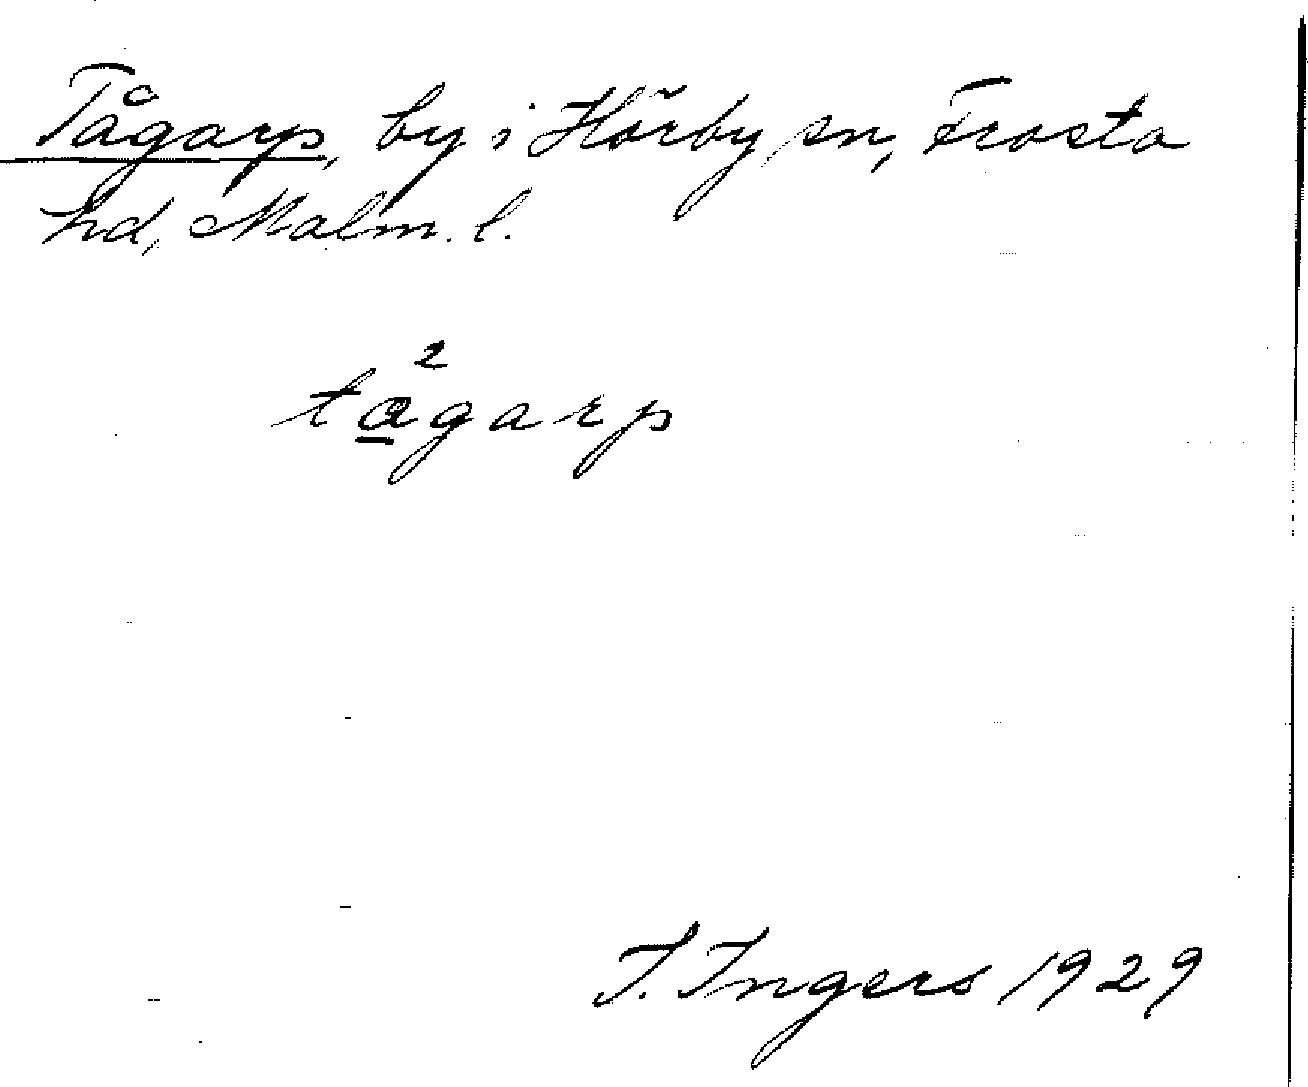 Tågarp, by i Hörby sn, Frosta
hd, Malm. l.
2
tagarp
I. Ingers 1929